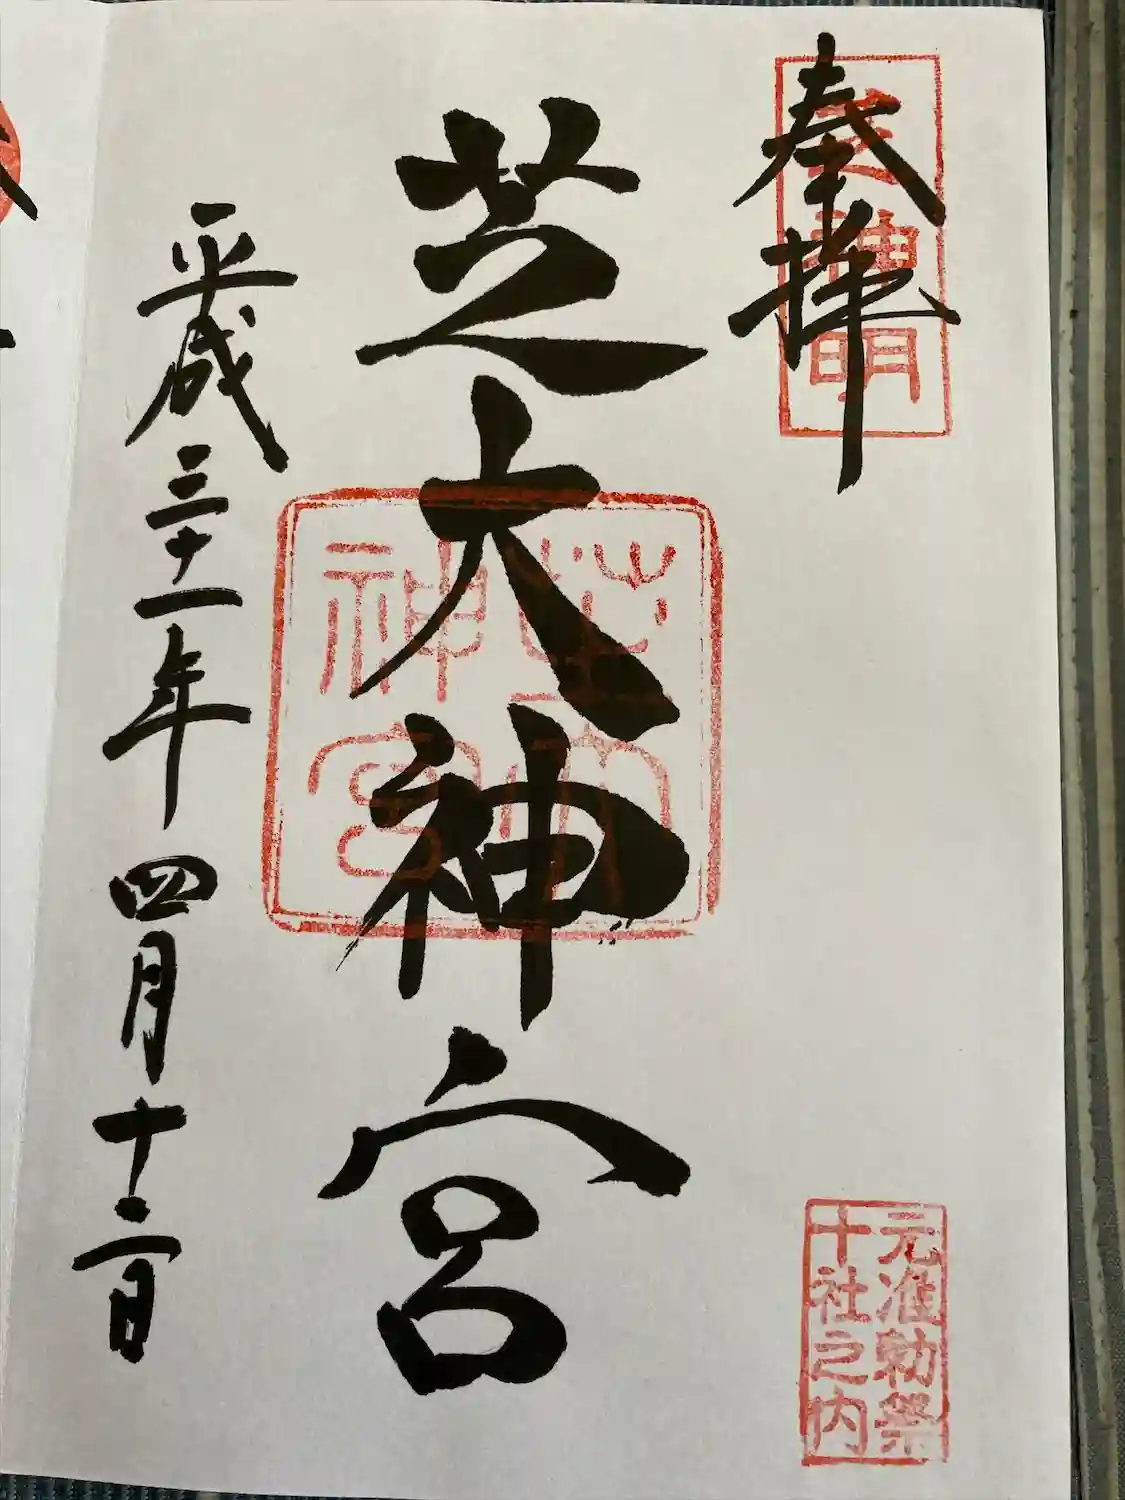 奉拝
芝神明
元准勅祭
十社之内
芝大神宮
芝大
神宮
平成三十一年四月十二日